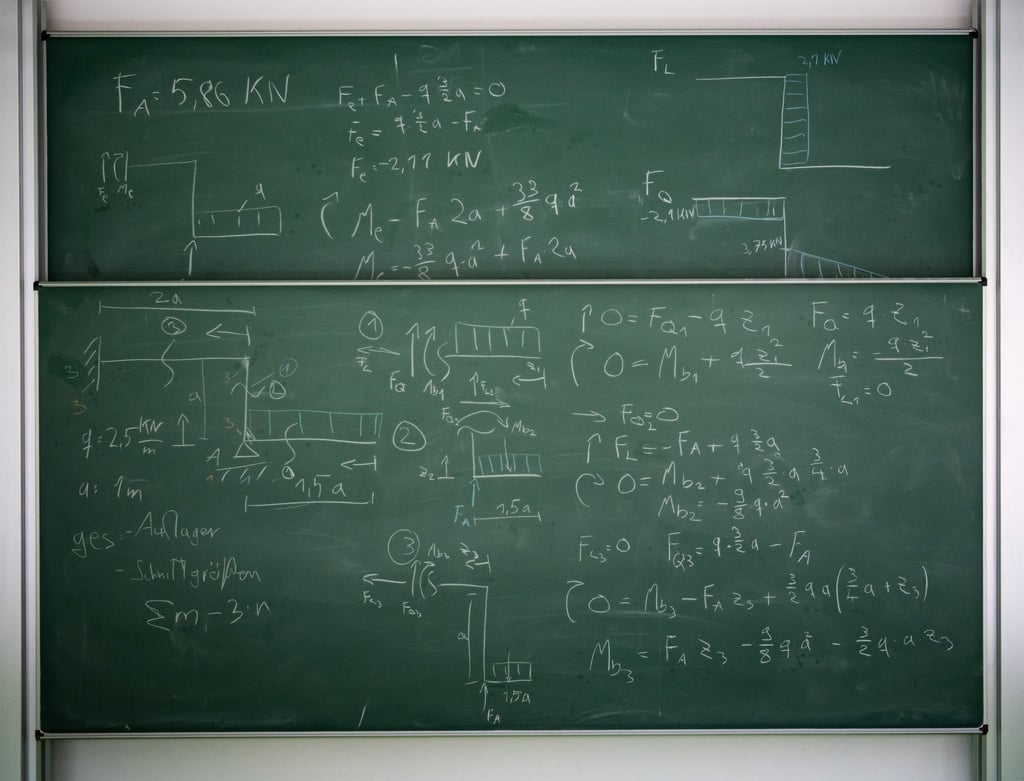 F_A = 5,86 KN
F_e + F_A - q 3/2 a = 0
F_e = q · 3/2 a - F_A
F_e = -2,11 KN
M_e - F_A 2a + 33/8 q a²
M_e = -33/8 q · a² + F_A · 2a
F_e M_e
q
F_L
2,1 KN
F_Q
-2,1 KN
3,75 KN
2a
3
3
3
a
1
2
A
1,5a
q = 2,5 KN/m
a = 1m
ges: - Auflager
- Schnittgrößen
Σm - 3·n
1
q
F_Q
M_b1
z_1
2
F_Q2
M_b2
z_2
F_A
1,5a
3
M_b3
z_3
F_L3
F_Q3
a
1,5a
F_A
0 = F_Q1 - q z_1
F_Q = q · z_1
0 = M_b1 + q z_1²/2
M_b1 = -q · z_1²/2
F_L1 = 0
→ F_Q2 = 0
↑ F_L = -F_A + q 3/2 a
0 = M_b2 + q 3/2 · a · 3/4 · a
M_b2 = -9/8 q · a²
F_L3 = 0
F_Q3 = q · 3/2 a - F_A
0 = M_b3 - F_A z_3 + 3/2 q a (3/4 a + z_3)
M_b3 = F_A z_3 - 9/8 q a² - 3/2 q · a · z_3